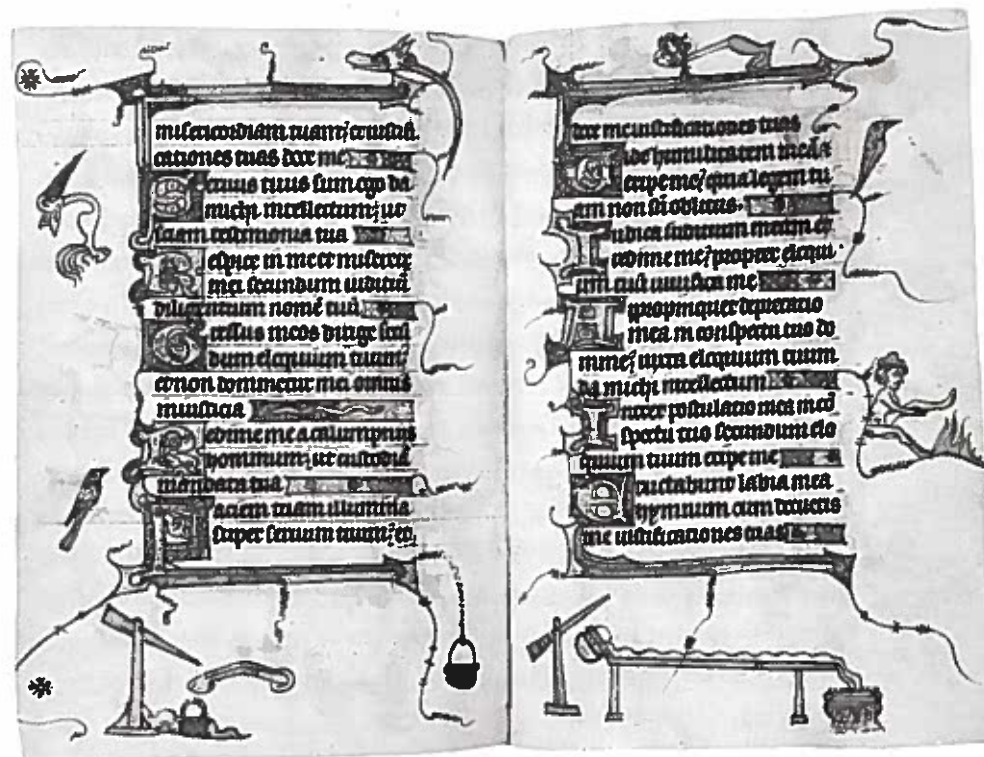 misericordiam tuam; et iustifi
cationes tuas doce me
Seruus tuus sum ego da
michi intellectum; ut
sciam testimonia tua
Respice in me et miserere
mei secundum iuditiū
diligentium nomē tuū
Gressus meos dirige secū
dum eloquium tuum;
et non dominetur mei omnis
iniusticia
Redime me a calumpniis
hominum; ut custodiā
mandata tua
Faciem tuam illumina
super seruum tuum; et
doce me iustificationes tuas
Uide humilitatem meā &
eripe me; quia legem tu
am non sū oblitus.
Iudica iudicium meum et
redime me; propter eloqui
um tuū uiuifica me
Appropinquet deprecatio
mea in conspectu tuo do
mine; iuxta eloquium tuum
da michi intellectum
Intret postulatio mea in cō
spectu tuo secundum elo
quium tuum eripe me
Eructabunt labia mea
hymnum cum docueris
me iustificationes tuas